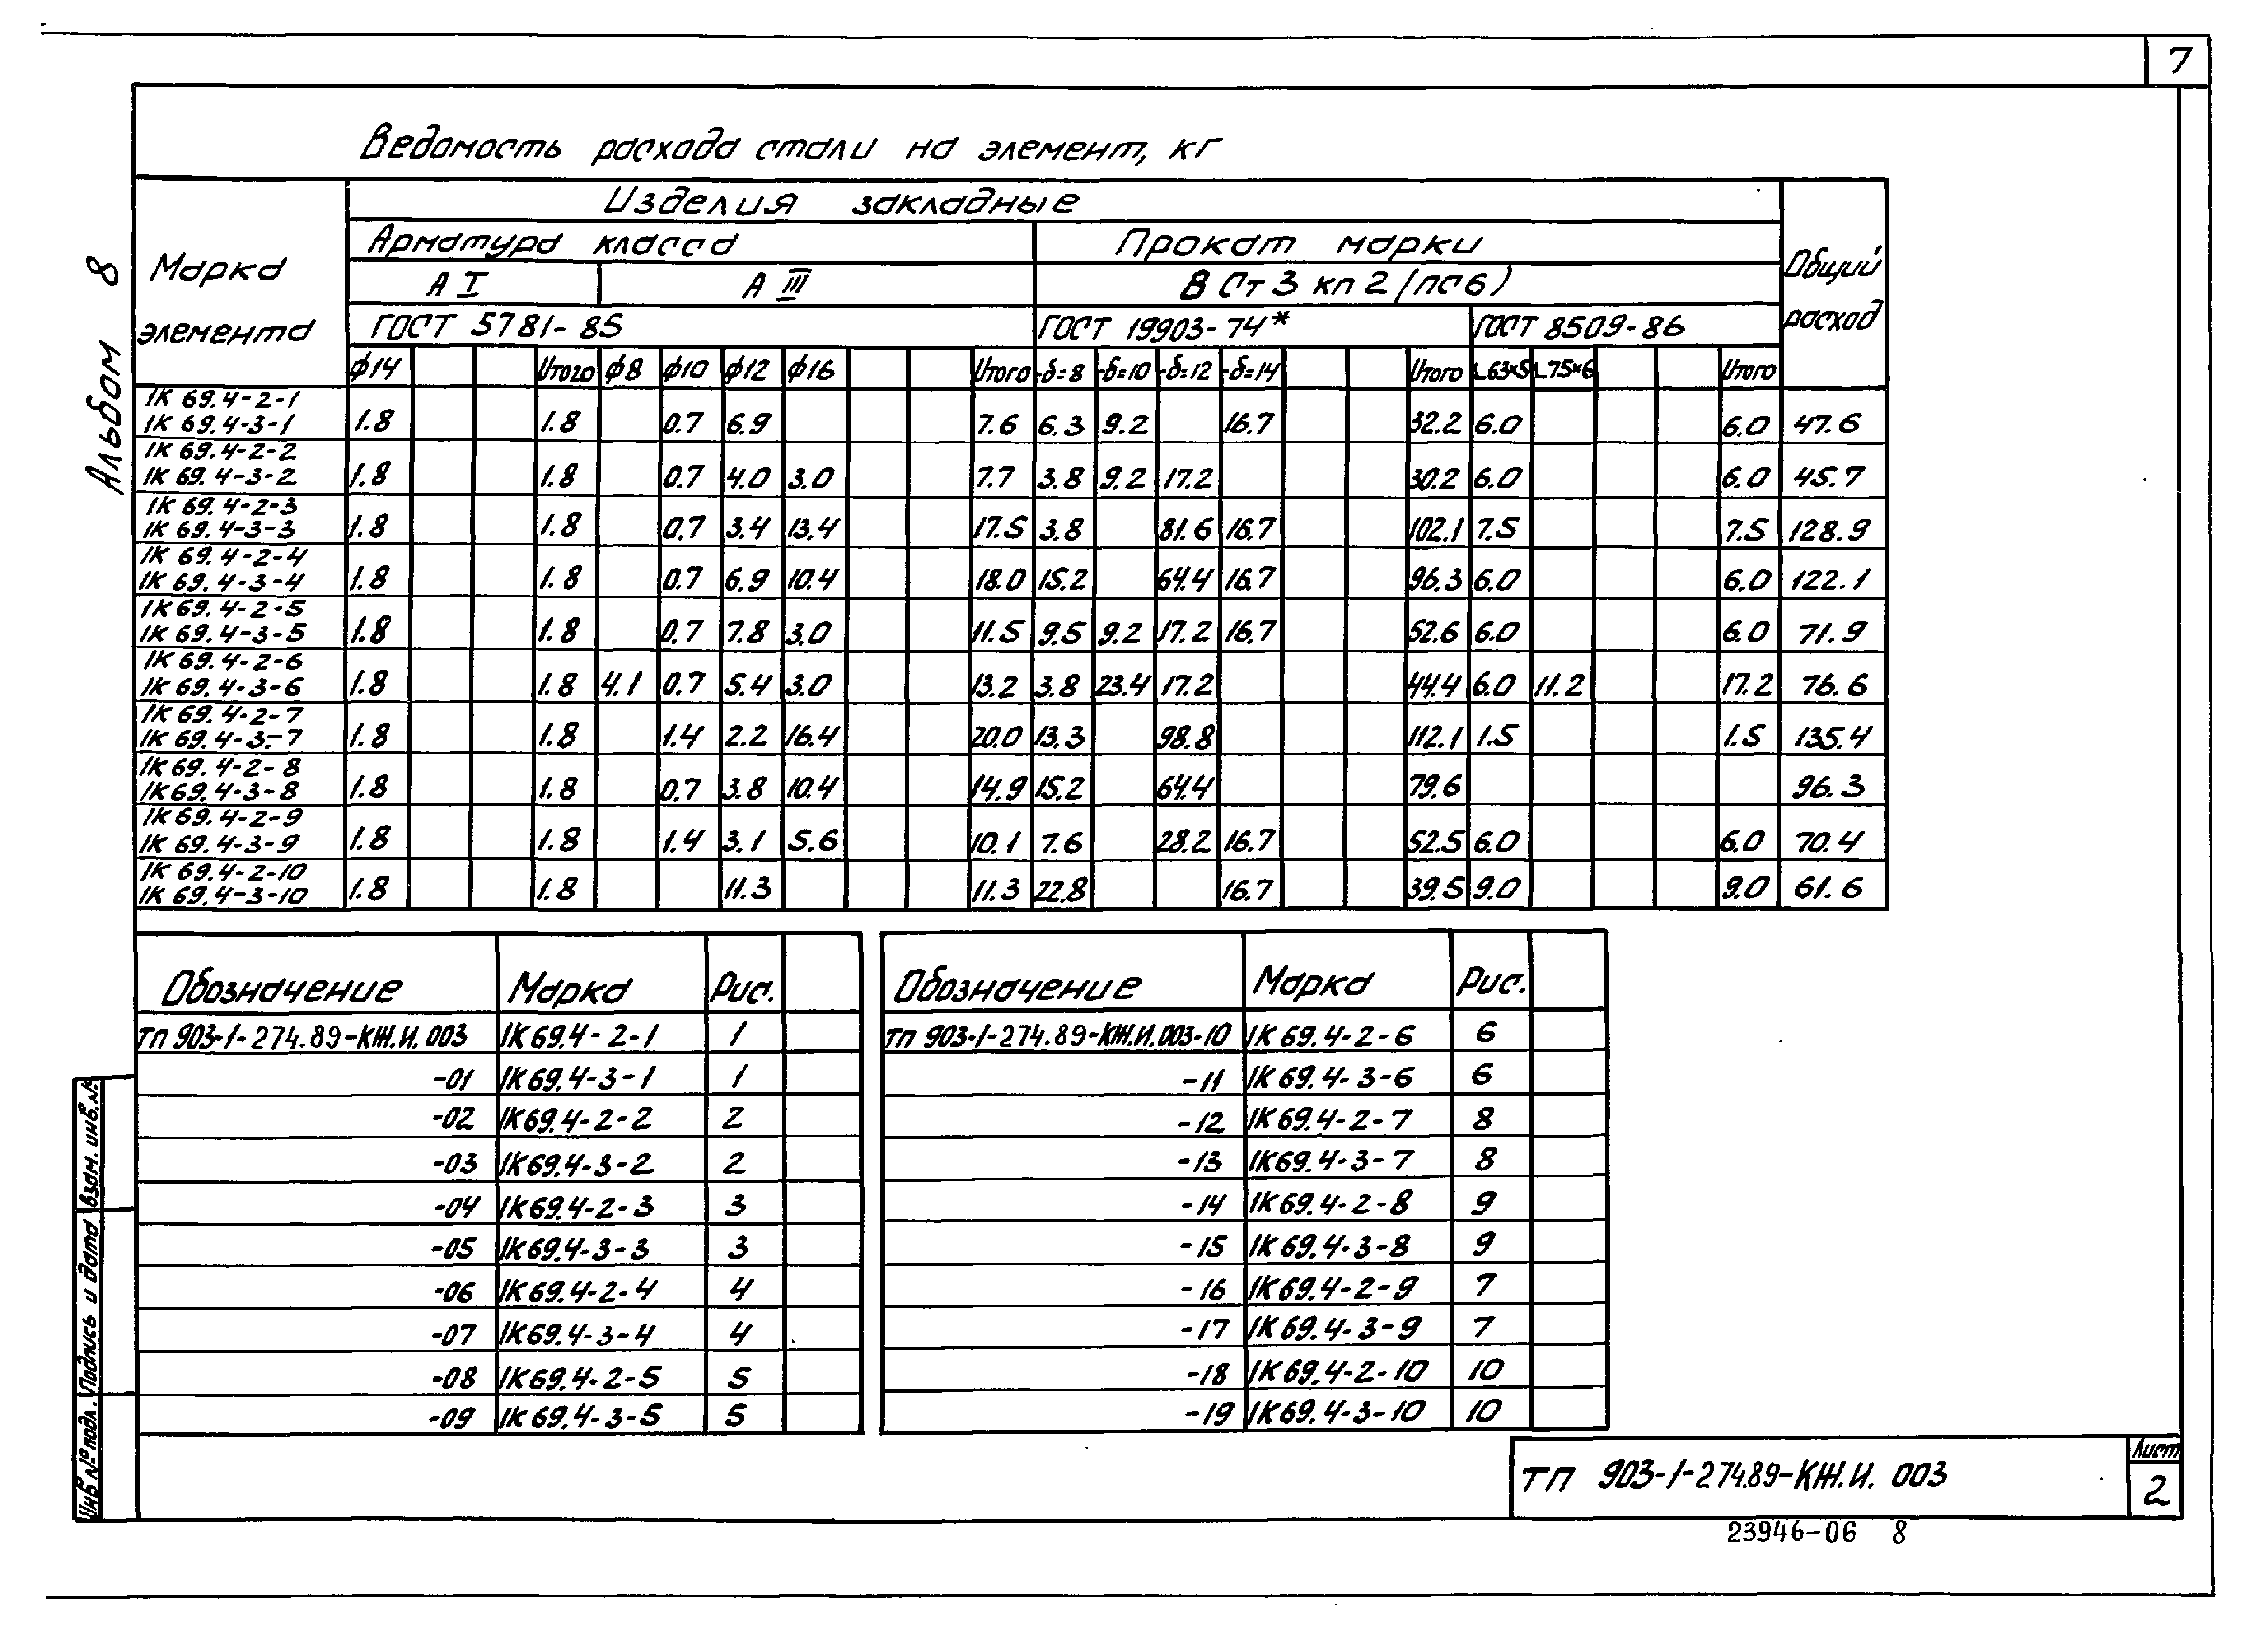 7
Альбом 8
Ведомость расхода стали на элемент, кг
Марка элемента
Изделия закладные
Общий расход
Арматура класса
Прокат марки
А I
А III
В Ст 3 кп 2 (пс 6)
ГОСТ 5781-85
ГОСТ 19903-74*
ГОСТ 8509-86
ф14 Итого ф8 ф10 ф12 ф16 Итого -δ=8 -δ=10 -δ=12 -δ=14 Итого L63×5 L75×6 Итого
1К 69.4-2-1
1К 69.4-3-1 1.8 1.8 0.7 6.9 7.6 6.3 9.2 16.7 32.2 6.0 6.0 47.6
1К 69.4-2-2
1К 69.4-3-2 1.8 1.8 0.7 4.0 3.0 7.7 3.8 9.2 17.2 30.2 6.0 6.0 45.7
1К 69.4-2-3
1К 69.4-3-3 1.8 1.8 0.7 3.4 13.4 17.5 3.8 81.6 16.7 102.1 7.5 7.5 128.9
1К 69.4-2-4
1К 69.4-3-4 1.8 1.8 0.7 6.9 10.4 18.0 15.2 64.4 16.7 96.3 6.0 6.0 122.1
1К 69.4-2-5
1К 69.4-3-5 1.8 1.8 0.7 7.8 3.0 11.5 9.5 9.2 17.2 16.7 52.6 6.0 6.0 71.9
1К 69.4-2-6
1К 69.4-3-6 1.8 1.8 4.1 0.7 5.4 3.0 13.2 3.8 23.4 17.2 44.4 6.0 11.2 17.2 76.6
1К 69.4-2-7
1К 69.4-3-7 1.8 1.8 1.4 2.2 16.4 20.0 13.3 98.8 112.1 1.5 1.5 135.4
1К 69.4-2-8
1К 69.4-3-8 1.8 1.8 0.7 3.8 10.4 14.9 15.2 64.4 79.6 96.3
1К 69.4-2-9
1К 69.4-3-9 1.8 1.8 1.4 3.1 5.6 10.1 7.6 28.2 16.7 52.5 6.0 6.0 70.4
1К 69.4-2-10
1К 69.4-3-10 1.8 1.8 11.3 11.3 22.8 16.7 39.5 9.0 9.0 61.6
Обозначение Марка Рис.
ТП 903-1-274.89-КЖ.И.003 1К69.4-2-1 1
-01 1К69.4-3-1 1
-02 1К69.4-2-2 2
-03 1К69.4-3-2 2
-04 1К69.4-2-3 3
-05 1К69.4-3-3 3
-06 1К69.4-2-4 4
-07 1К69.4-3-4 4
-08 1К69.4-2-5 5
-09 1К69.4-3-5 5
Обозначение Марка Рис.
ТП 903-1-274.89-КЖ.И.003-10 1К69.4-2-6 6
-11 1К69.4-3-6 6
-12 1К69.4-2-7 8
-13 1К69.4-3-7 8
-14 1К69.4-2-8 9
-15 1К69.4-3-8 9
-16 1К69.4-2-9 7
-17 1К69.4-3-9 7
-18 1К69.4-2-10 10
-19 1К69.4-3-10 10
Инв № подл. Подпись и дата Взам. инв. №
ТП 903-1-274.89-КЖ.И. 003
Лист
2
23946-06 8